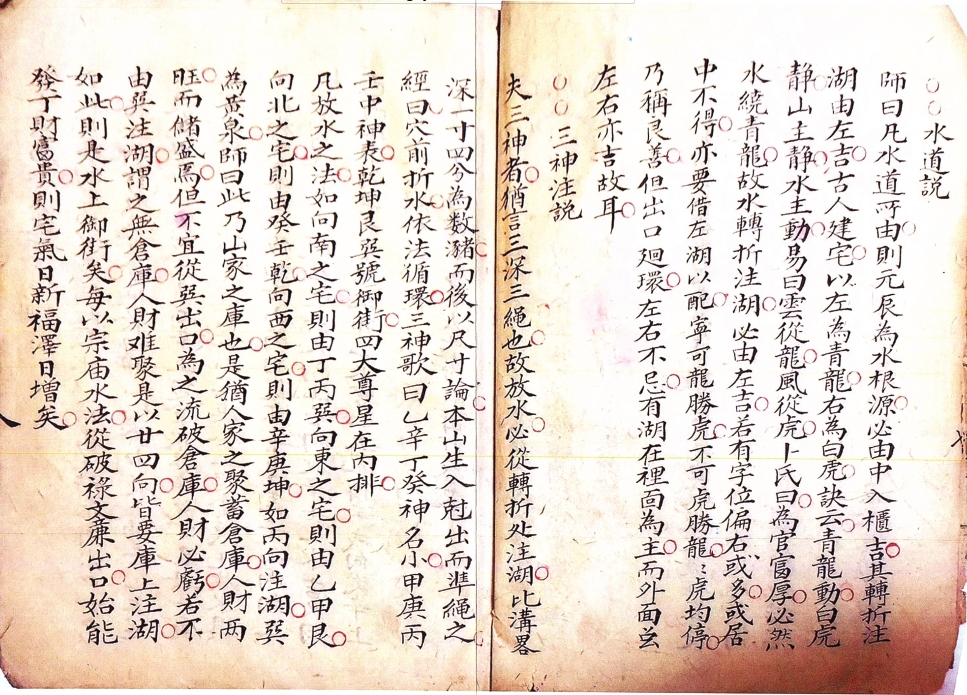 水道説
師曰凡水道所由則元辰為水根源必由中入櫃吉其轉折注
湖由左吉古人建宅以左為青龍右為白虎訣云青龍動白虎
静山主静水主動易曰雲從龍風從虎卜氏曰為官富厚必然
水繞青龍故水轉折注湖必由左吉若有字位偏右或多或居
中不得亦要借左湖以配寧可龍勝虎不可虎勝龍〻虎均停
乃稱良善但出口廻環左右不忌有湖在裡面為主而外面
左右亦吉故耳
三神注説
夫三神者猶言三深三繩也故放水必從轉折处注湖比溝畧
深一寸四分為数瀦而後以尺寸論本山生入尅出而準繩之
經曰穴前折水依法循環三神歌曰乙辛丁癸神名小甲庚丙
壬中神表乾坤艮巽號御街四大尊星在内排
凡放水之法如向南之宅則由丁丙巽向東之宅則由乙甲艮
向北之宅則由癸壬乾向西之宅則由辛庚坤如丙向注湖巽
為黄泉師曰此乃山家之庫也是猶人家之聚蓄倉庫人財两
旺而儲盛焉但不宜從巽出口為之流破倉庫人財必虧若不
由巽注湖謂之無倉庫人財难聚是以廿四向皆要庫上注湖
如此則是水上御街矣每以宗庙水法從破祿文廉出口始能
發丁財富貴則宅氣日新福澤日增矣